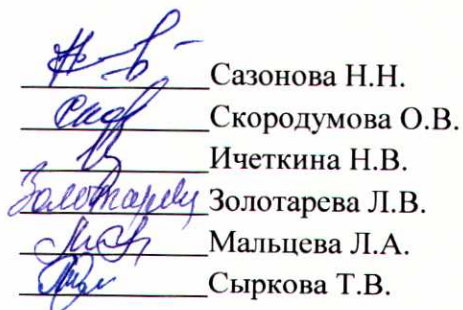 Сазонова Н.Н.
Скородумова О.В.
Ичеткина Н.В.
Золотарева Золотарева Л.В.
Мальцева Л.А.
Сыркова Т.В.